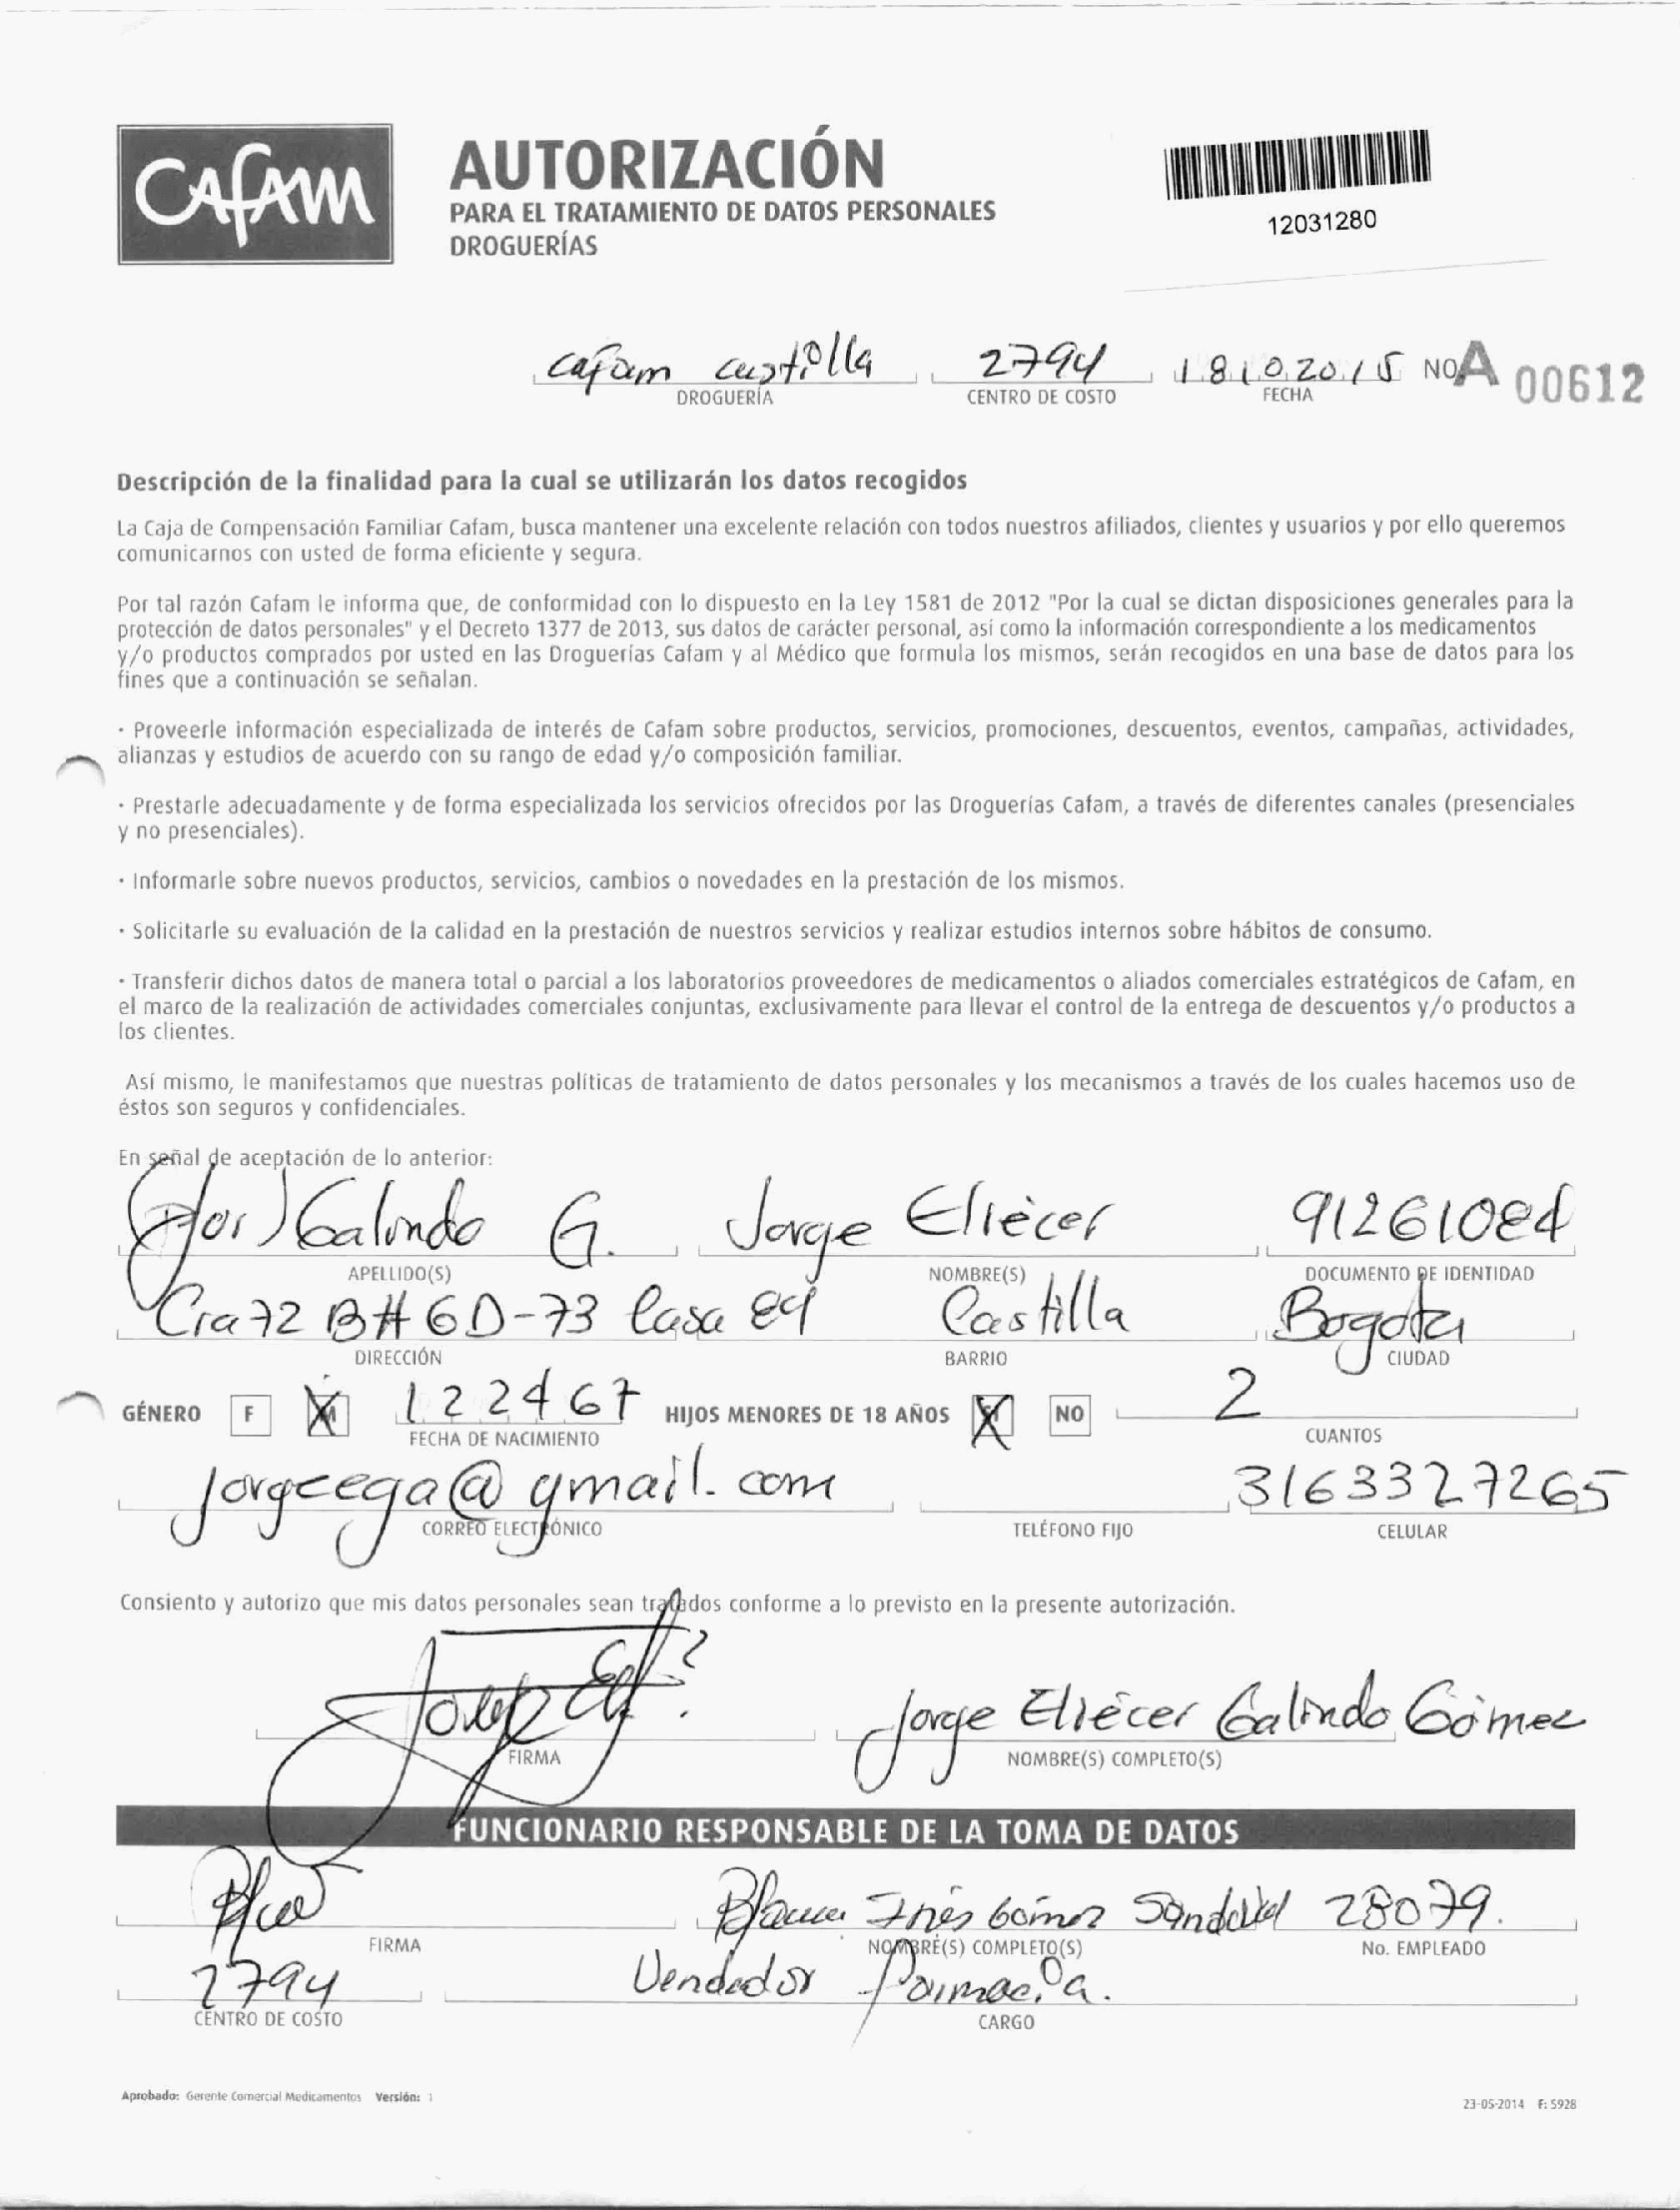 Cafam
AUTORIZACIÓN
PARA EL TRATAMIENTO DE DATOS PERSONALES
DROGUERÍAS
12031280
cafam castilla 2794 18102015 NO A 00612
DROGUERÍA CENTRO DE COSTO FECHA
Descripción de la finalidad para la cual se utilizarán los datos recogidos
La Caja de Compensación Familiar Cafam, busca mantener una excelente relación con todos nuestros afiliados, clientes y usuarios y por ello queremos
comunicarnos con usted de forma eficiente y segura.
Por tal razón Cafam le informa que, de conformidad con lo dispuesto en la Ley 1581 de 2012 "Por la cual se dictan disposiciones generales para la
protección de datos personales" y el Decreto 1377 de 2013, sus datos de carácter personal, así como la información correspondiente a los medicamentos
y/o productos comprados por usted en las Droguerías Cafam y al Médico que formula los mismos, serán recogidos en una base de datos para los
fines que a continuación se señalan.
· Proveerle información especializada de interés de Cafam sobre productos, servicios, promociones, descuentos, eventos, campañas, actividades,
alianzas y estudios de acuerdo con su rango de edad y/o composición familiar.
· Prestarle adecuadamente y de forma especializada los servicios ofrecidos por las Droguerías Cafam, a través de diferentes canales (presenciales
y no presenciales).
· Informarle sobre nuevos productos, servicios, cambios o novedades en la prestación de los mismos.
· Solicitarle su evaluación de la calidad en la prestación de nuestros servicios y realizar estudios internos sobre hábitos de consumo.
· Transferir dichos datos de manera total o parcial a los laboratorios proveedores de medicamentos o aliados comerciales estratégicos de Cafam, en
el marco de la realización de actividades comerciales conjuntas, exclusivamente para llevar el control de la entrega de descuentos y/o productos a
los clientes.
Así mismo, le manifestamos que nuestras políticas de tratamiento de datos personales y los mecanismos a través de los cuales hacemos uso de
éstos son seguros y confidenciales.
En señal de aceptación de lo anterior:
Galindo G. Jorge Eliècer 91261084
APELLIDO(S) NOMBRE(S) DOCUMENTO DE IDENTIDAD
Cra 72 B # 6D-73 Casa 84 Castilla Bogota
DIRECCIÓN BARRIO CIUDAD
GÉNERO F M 122467 HIJOS MENORES DE 18 AÑOS SI NO 2
FECHA DE NACIMIENTO CUANTOS
jorgeega@gmail.com 3163327265
CORREO ELECTRÓNICO TELÉFONO FIJO CELULAR
Consiento y autorizo que mis datos personales sean tratados conforme a lo previsto en la presente autorización.
Jorge Eliécer Galindo Gómez
FIRMA NOMBRE(S) COMPLETO(S)
FUNCIONARIO RESPONSABLE DE LA TOMA DE DATOS
Blanca Inés Gómez Sandoval 28079.
FIRMA NOMBRE(S) COMPLETO(S) No. EMPLEADO
2794 Vendedor Farmacia.
CENTRO DE COSTO CARGO
Aprobado: Gerente Comercial Medicamentos Versión: 1
23-05-2014 F: 5928